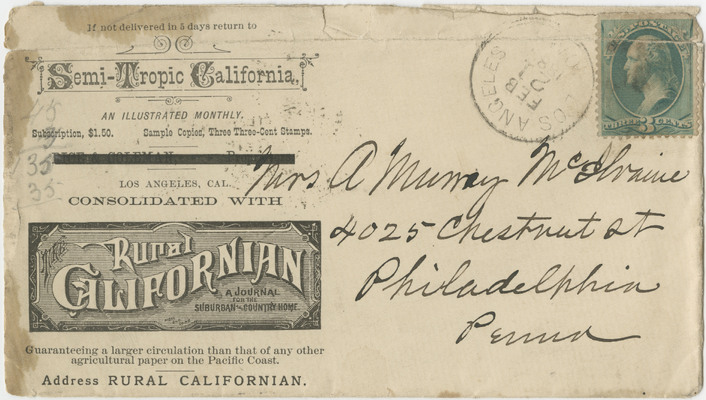 If not delivered in 5 days return to
Semi-Tropic California,
AN ILLUSTRATED MONTHLY.
Subscription, $1.50. Sample Copies, Three Three-Cent Stamps.
COLEMAN,
LOS ANGELES, CAL.
CONSOLIDATED WITH
The
Rural
CALIFORNIAN
A JOURNAL
FOR THE
SUBURBAN AND COUNTRY HOME.
Guaranteeing a larger circulation than that of any other
agricultural paper on the Pacific Coast.
Address RURAL CALIFORNIAN.
LOS ANGELES
FEB
U.S. POSTAGE
THREE 3 CENTS
Mrs A Murray McIlvaine
4025 Chestnut St
Philadelphia
Penna
45
35
35